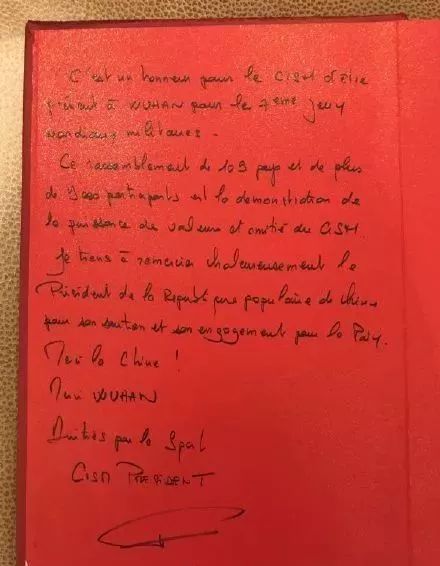 C'est un honneur pour le CISM d'être
présent à WUHAN pour les 7ème Jeux
mondiaux militaires.
Ce rassemblement de 109 pays et de plus
de 9000 participants est la démonstration de
la puissance des valeurs et amitié du CISM.
Je tiens à remercier chaleureusement le
Président de la République populaire de Chine
pour son soutien et son engagement pour la Paix.
Merci la Chine !
Merci WUHAN
Amitiés par le Sport
CISM PRESIDENT